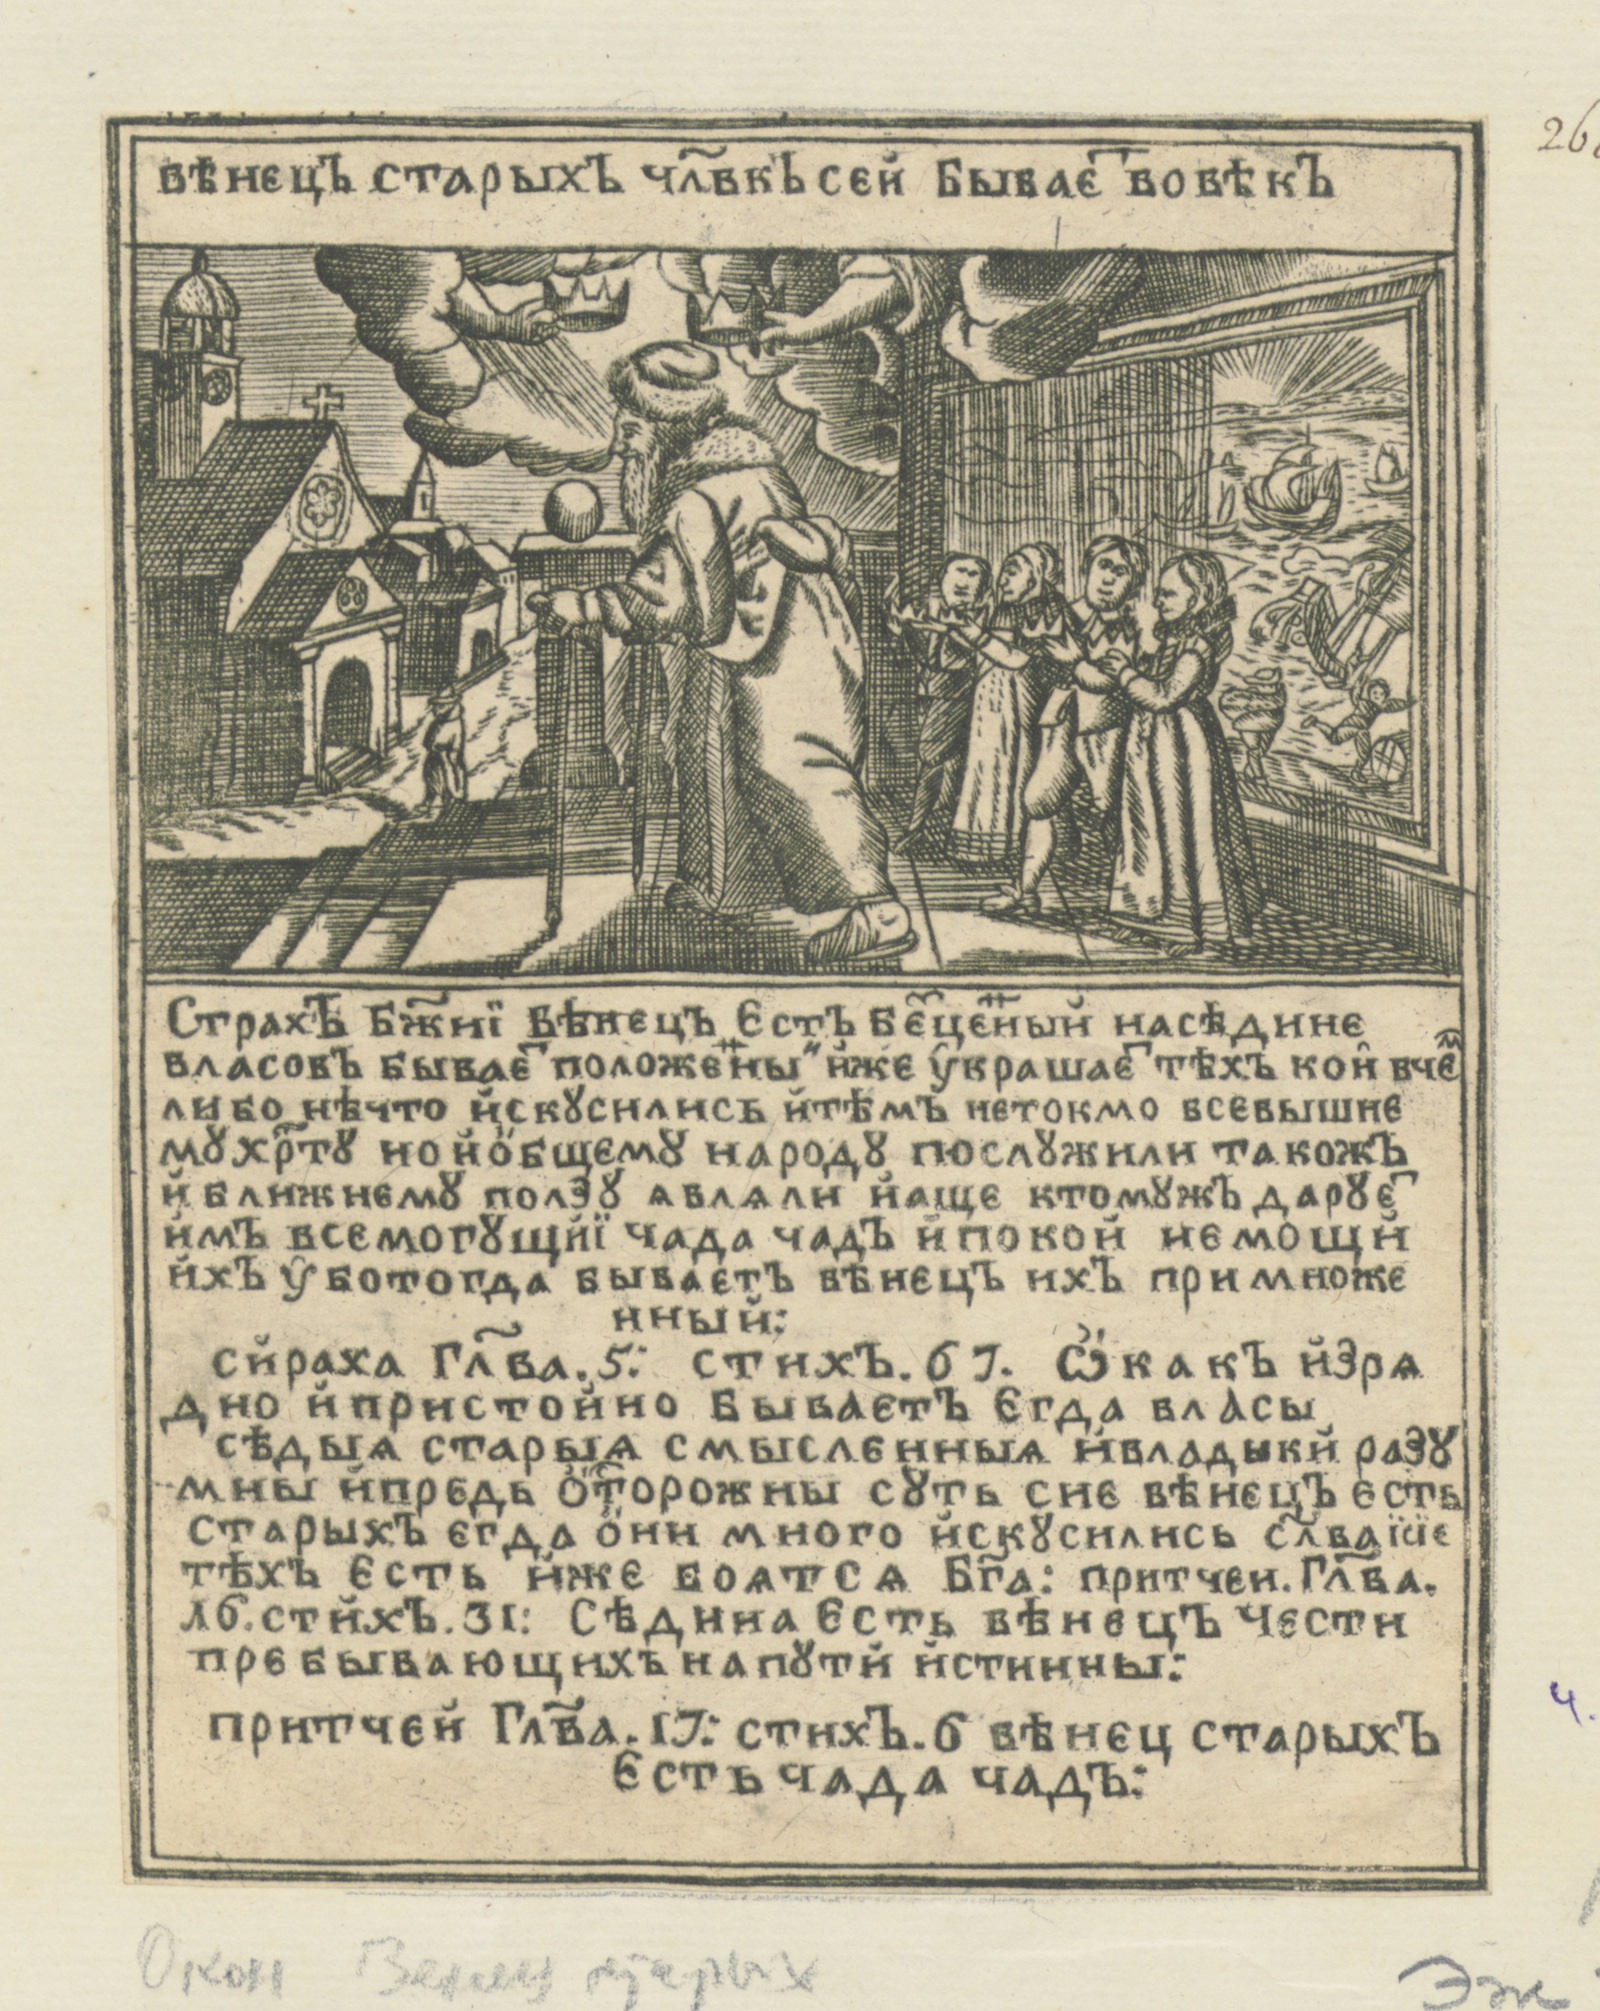 вѣнецъ старыхъ чл҃вкъ сей бываеⷮ вовѣкъ
Страхъ бж҃ниї вѣнецъ єсть бе҃це́нⁿый насѣдине
власовъ бываеⷮ положеⁿны и҆же ᲂу҆крашаеⷮ тѣхъ кои вчеⷨ
либо нѣчто и҆скꙋсились и҆тѣмъ нетокмо всевышне
мꙋхрⷭ҇тꙋ нои҆о҆бщемꙋ народꙋ послꙋжили такожъ
и҆ближнемꙋ ползꙋ ѧвлѧли и҆аще ктомꙋжъ дарꙋеⷮ
и҆мъ всемогꙋщиї чада чадъ и҆покой немощи
и҆хъ у҆ботогда бываєтъ вѣнєцъ ихъ примноже
нный:
си́раха Гл҃ва. 5: стихъ. 6 7. Ѽкакъ и҆зрѧ
дно и҆пристойно бываєтъ єгда власы
сѣдыѧ старыѧ смысленныѧ и҆владыки разꙋ
мны и҆предь о҆ⷭ҇торожны сꙋть сие вѣнєцъ єсть
старыхъ єгда о҆ни много и҆скꙋсились сл҃ваїшє
тѣхъ єсть и҆же боѧтсѧ Бг҃а: притчеи. Гл҃ва.
16. стихъ. 31: Сѣдина єсть вѣнєцъ чести
пребывающихъ напꙋти и҆стинны:
притчей Гл҃ва. 17: стихъ. 6 вѣнєц старыхъ
Єсть чада чадъ:
26
ч.
Окон Венец старых
Эк